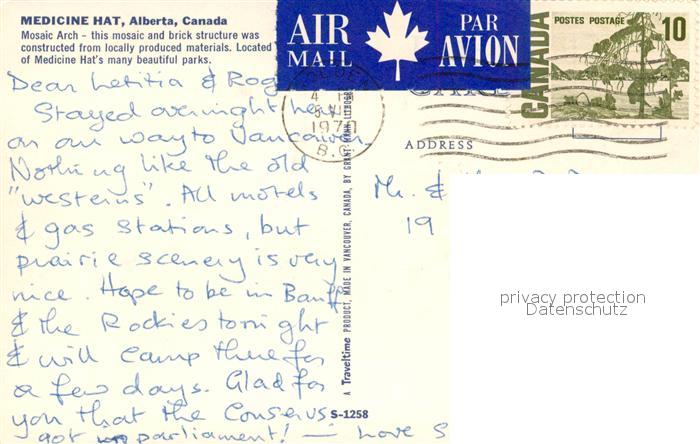 MEDICINE HAT, Alberta, Canada
Mosaic Arch - this mosaic and brick structure was
constructed from locally produced materials. Located
of Medicine Hat's many beautiful parks.
AIR MAIL
PAR AVION
CANADA
POSTES POSTAGE
10
1970
B.C.
ADDRESS
Dear Letitia & Rog
Stayed overnight here
on our way to Vancouver.
Nothing like the old
"westerns". All motels
& gas stations, but
prairie scenery is very
nice. Hope to be in Banff
& the Rockies tonight
& will camp there for
a few days. Glad for
you that the Conservs
got parliament! — Love S
Mr. &
19
A Traveltime PRODUCT, MADE IN VANCOUVER, CANADA, BY GRANT-MANN LITHOGR
S-1258
privacy protection
Datenschutz